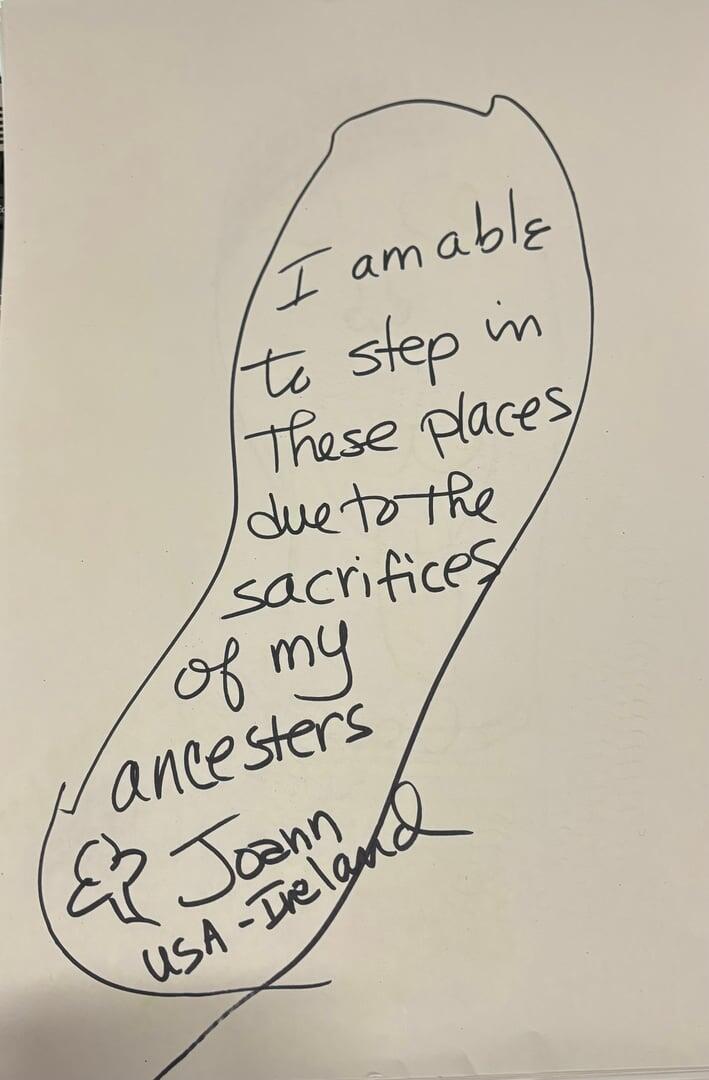 I am able
to step in
These places
due to the
sacrifices
of my
ancesters
Joann
USA - Ireland